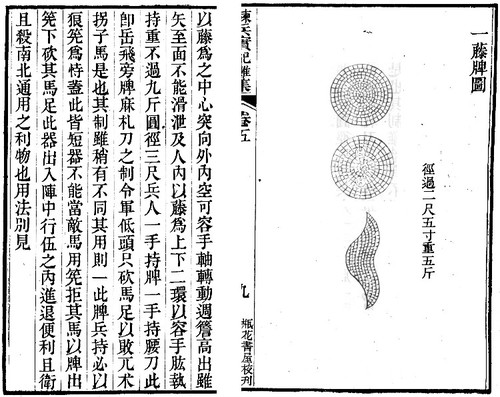 一藤牌圖
徑過二尺五寸重五斤
練兵實紀雜集
卷五
九
以藤爲之中心突向外內空可容手軸轉動週簷高出雖
矢至面不能滑泄及人內以藤爲上下二環以容手肱執
持重不過九斤圓徑三尺兵人一手持牌一手持腰刀此
卽岳飛旁牌麻札刀之制令軍低頭只砍馬足以敗兀术
拐子馬是也其制雖稍有不同其用則一此牌兵持必以
狼筅爲恃蓋此皆短器不能當敵馬用筅拒其馬以牌出
筅下砍其馬足此器出入陣中行伍之內進退便利且衛
且殺南北通用之利物也用法別見